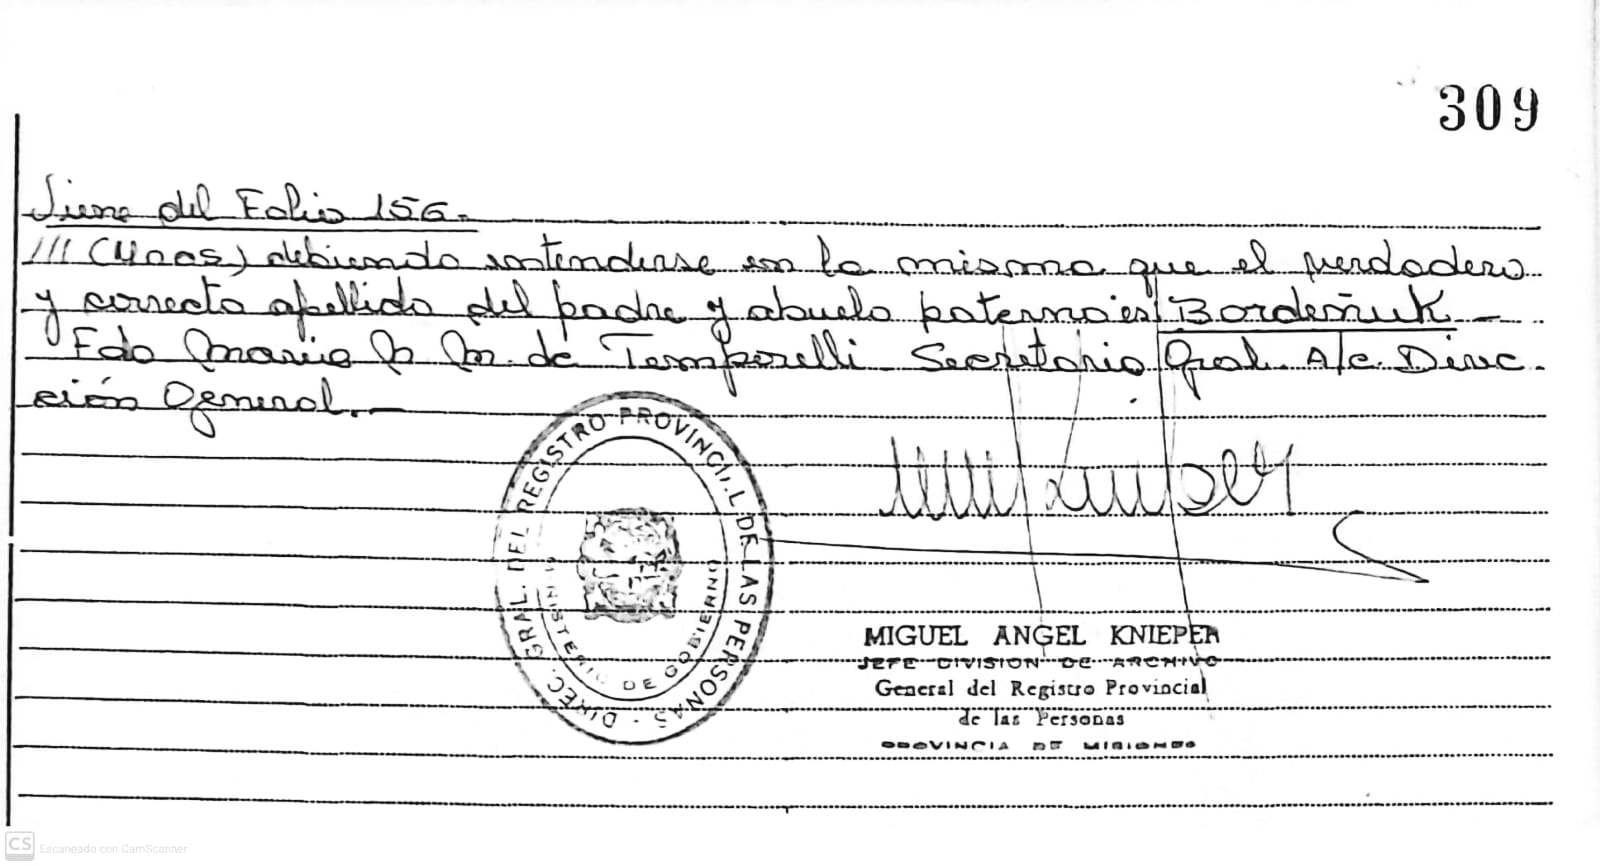 309
Viene del Folio 156.-
/// (Maas) debiendo entenderse en la misma que el verdadero
y correcto apellido del padre y abuelo paterno es Bordeñuk -
Fdo Maria M de Temporelli Secretario Gral. A/c. Direc-
ción General.-
DIREC. GRAL. DEL REGISTRO PROVINCIAL DE LAS PERSONAS -
MINISTERIO DE GOBIERNO
MIGUEL ANGEL KNIEPER
JEFE DIVISION DE ARCHIVO
General del Registro Provincial
de las Personas
PROVINCIA DE MISIONES
CS Escaneado con CamScanner